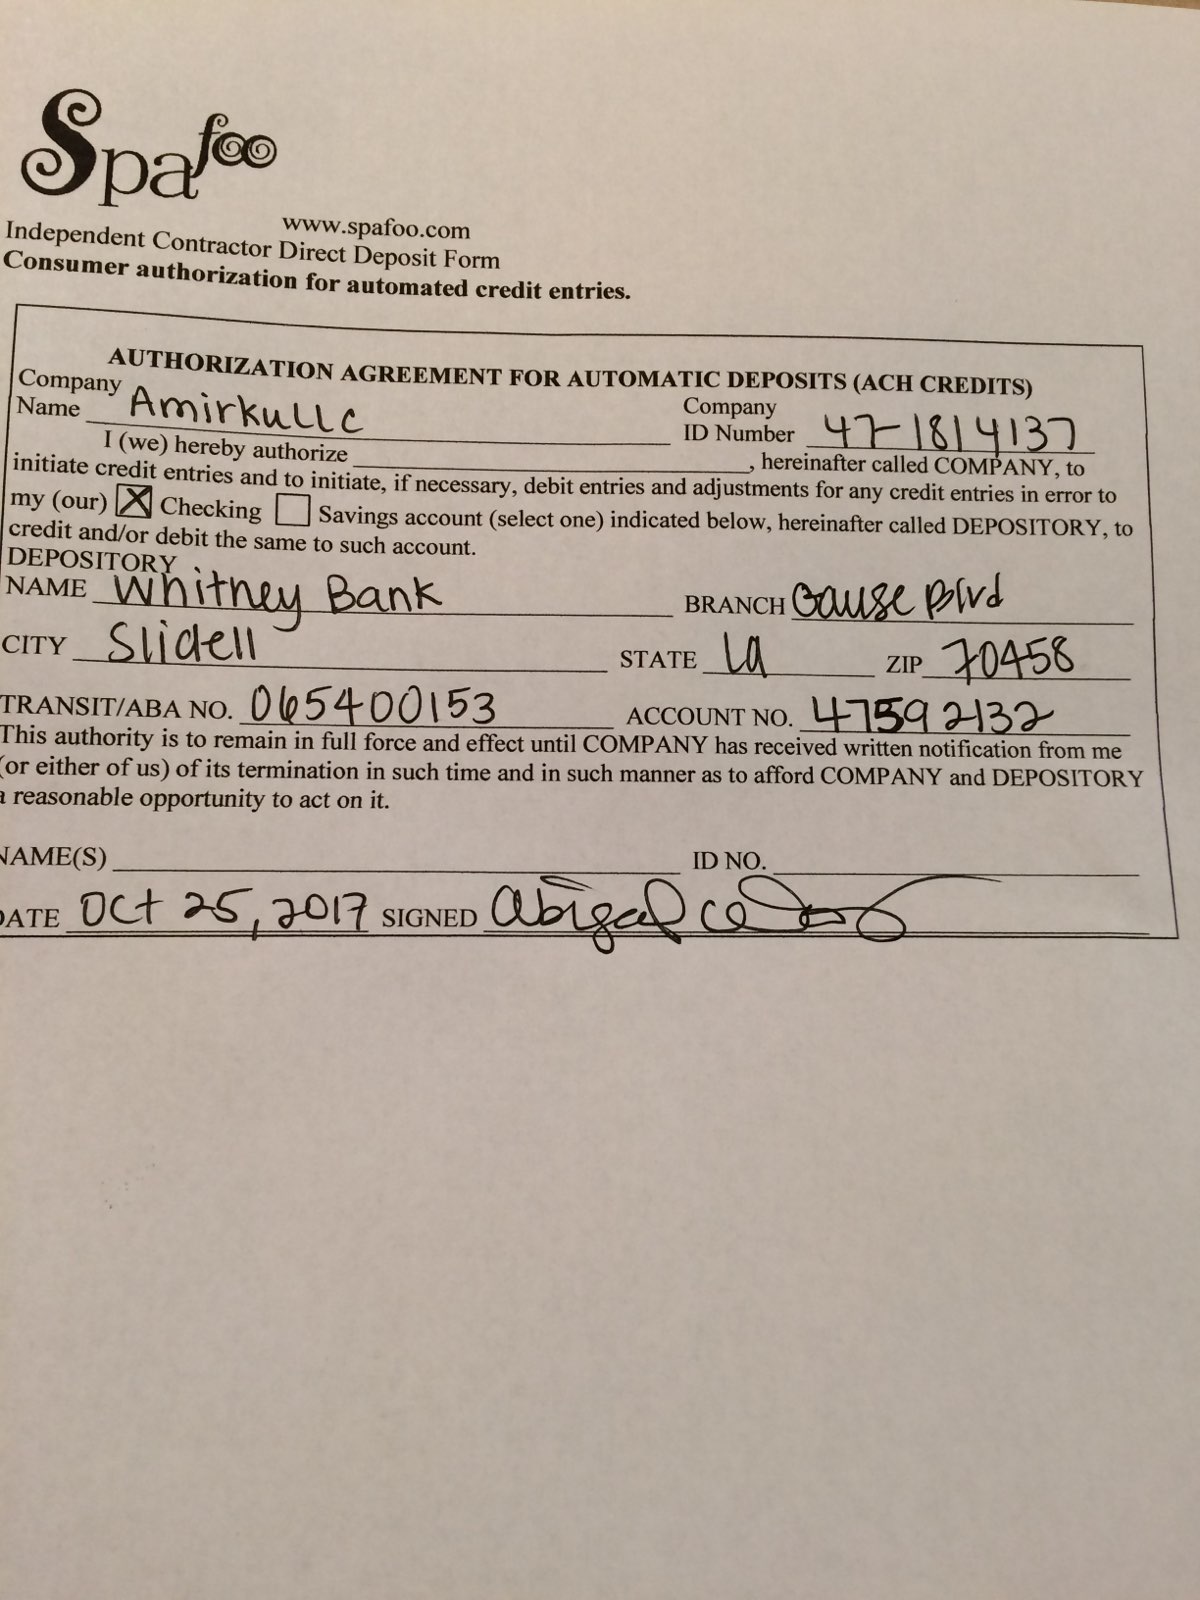 Spa foo
www.spafoo.com
Independent Contractor Direct Deposit Form
Consumer authorization for automated credit entries.
AUTHORIZATION AGREEMENT FOR AUTOMATIC DEPOSITS (ACH CREDITS)
Company Name Amirkullc Company ID Number 47-1814137
I (we) hereby authorize ________, hereinafter called COMPANY, to
initiate credit entries and to initiate, if necessary, debit entries and adjustments for any credit entries in error to
my (our) [X] Checking [ ] Savings account (select one) indicated below, hereinafter called DEPOSITORY, to
credit and/or debit the same to such account.
DEPOSITORY
NAME Whitney Bank BRANCH Gause Blvd
CITY Slidell STATE La ZIP 70458
TRANSIT/ABA NO. 065400153 ACCOUNT NO. 47592132
This authority is to remain in full force and effect until COMPANY has received written notification from me
(or either of us) of its termination in such time and in such manner as to afford COMPANY and DEPOSITORY
a reasonable opportunity to act on it.
NAME(S) ________ ID NO. ________
DATE Oct 25, 2017 SIGNED Abigail